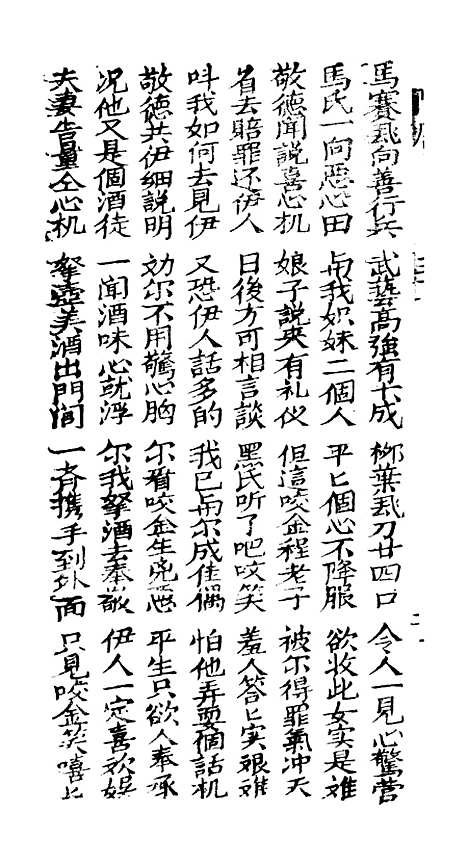 馬賽飛向善行兵 武藝高強有十成 柳葉飛刀廿四口 令人一見心驚营
馬氏一向恶心田 与我姐妹二個人 平匕個心不降服 欲收此女实是难
敬德聞説喜心机 娘子説央有礼仪 但這咬金程老子 被尔得罪氣冲天
省去賠罪还伊人 日後方可相言談 黑氏听了吧吱笑 羞人答匕实艰难
呌我如何去見伊 又恐伊人話多的 我已与尔成佳偶 怕他弄耍個話机
敬德共伊細説明 効尔不用驚心胸 尔看咬金生兇惡 平生只欲人奉承
况他又是個酒徒 一聞酒味心就浮 尔我拏酒去奉敬 伊人一定喜欢娱
夫妻告量仝心机 拏壺美酒出門闾 一斉携手到外面 只見咬金笑嘻匕